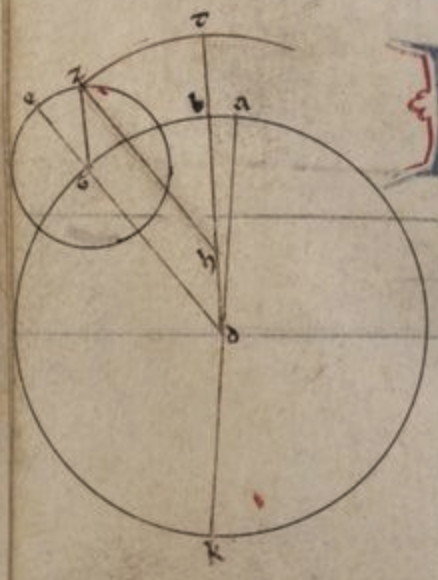 t
z
e
b a
c
h
d
k